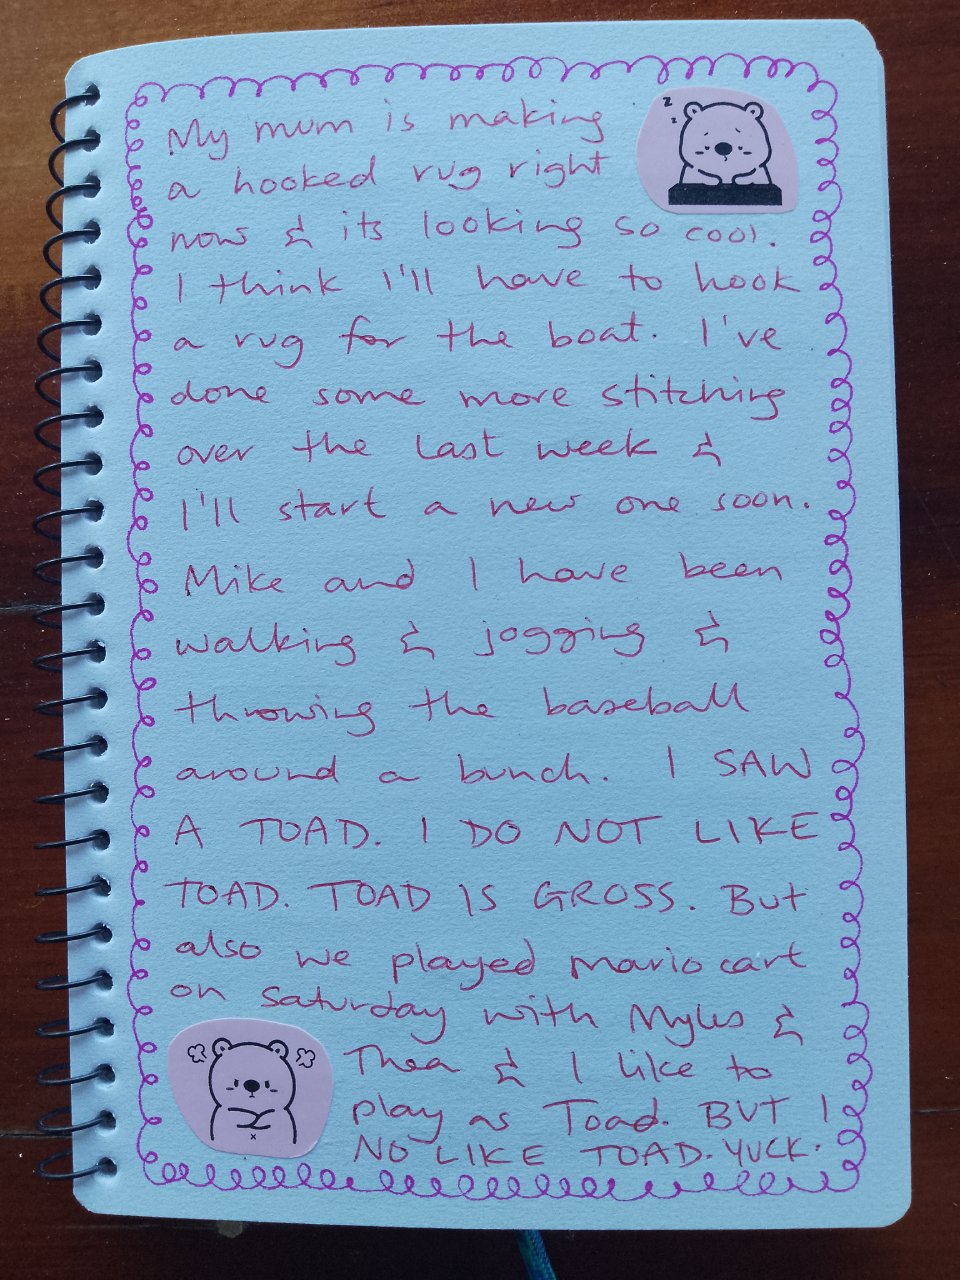 My mum is making
a hooked rug right
now & its looking so cool.
I think I'll have to hook
a rug for the boat. I've
done some more stitching
over the last week &
I'll start a new one soon.
Mike and I have been
walking & jogging &
throwing the baseball
around a bunch. I SAW
A TOAD. I DO NOT LIKE
TOAD. TOAD IS GROSS. But
also we played mario cart
on Saturday with Myles &
Thea & I like to
play as Toad. BUT I
NO LIKE TOAD. YUCK.
z
z
x